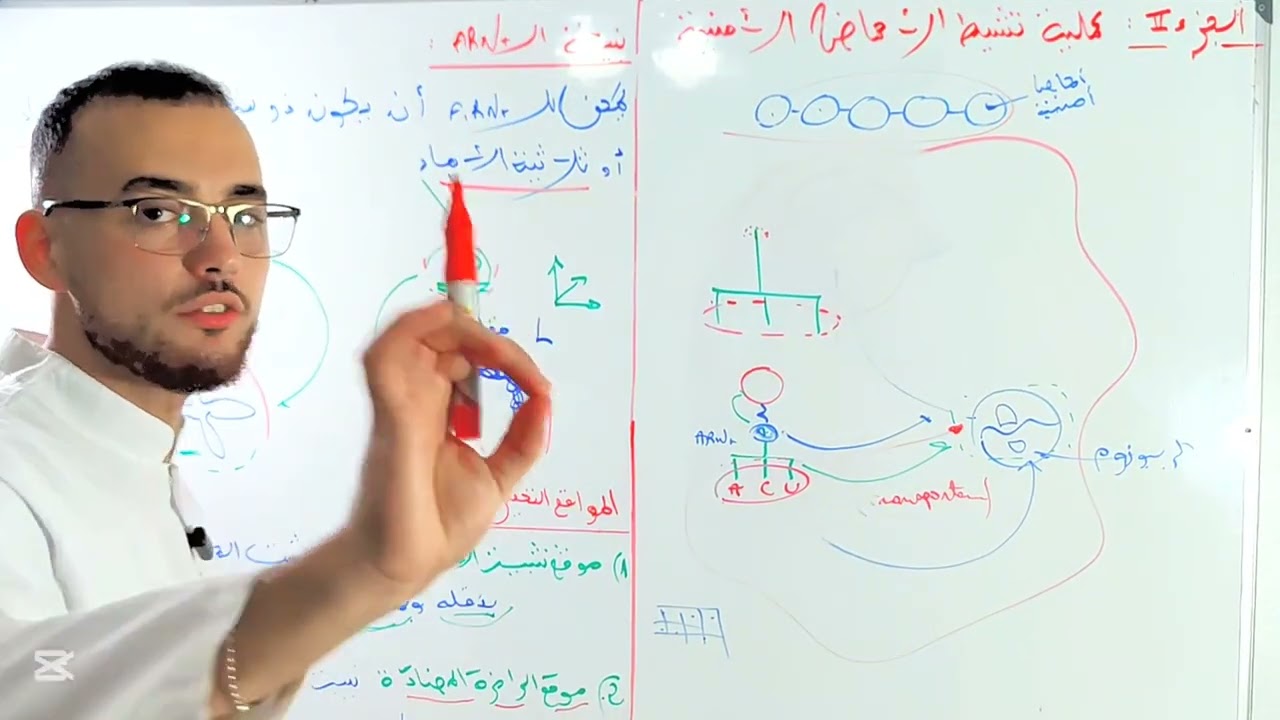 الجزء II : عملية تنشيط الأحماض الأمينية
أحماض
أمينية
ARNt
A C U
transporteur
ريبوزوم
بنية الـ ARNt :
يمكن للـ ARNt أن يكون ذو
أو ثلاثية الأبعاد
L
المواقع
1) موقع تثبيت
ينقله
2) موقع الرامزة المضادة